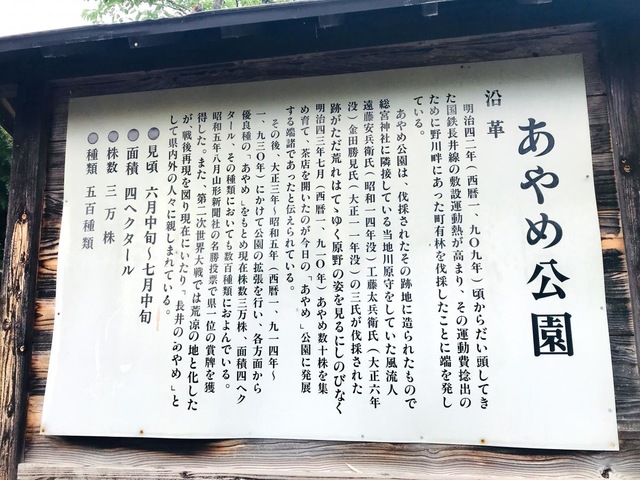 あやめ公園
沿革
明治四二年（西暦一、九〇九年）頃からだい頭してき
た国鉄長井線の敷設運動熱が高まり、その運動費捻出の
ために野川畔にあった町有林を伐採したことに端を発し
ている。
あやめ公園は、伐採されたその跡地に造られたもので
総宮神社に隣接している当地川原守をしていた風流人
遠藤安兵衛氏（昭和一四年没）工藤太兵衛氏（大正六年
没）金田勝見氏（大正一一年没）の三氏が伐採された
跡がただ荒れはてゝゆく原野の姿を見るにしのびなく
明治四三年七月（西暦一、九一〇年）あやめ数十株を集
め育て、茶店を開いたのが今日の「あやめ」公園に発展
する端諸であったと伝えられている。
その後、大正三年〜昭和五年（西暦一、九一四年〜
一、九三〇年）にかけて公園の拡張を行い、各方面から
優良種の「あやめ」をもとめ現在株数三万株、面積四ヘク
タール、その種類においても数百種類におよんでいる。
昭和五年八月山形新聞社の名勝投票で県一位の賞牌を獲
得した。また、第二次世界大戦では荒凉の地と化した
が戦後再現を図り現在にいたり、長井の「あやめ」と
して県内外の人々に親しまれている。
●見頃 六月中旬〜七月中旬
●面積 四ヘクタール
●株数 三万株
●種類 五百種類